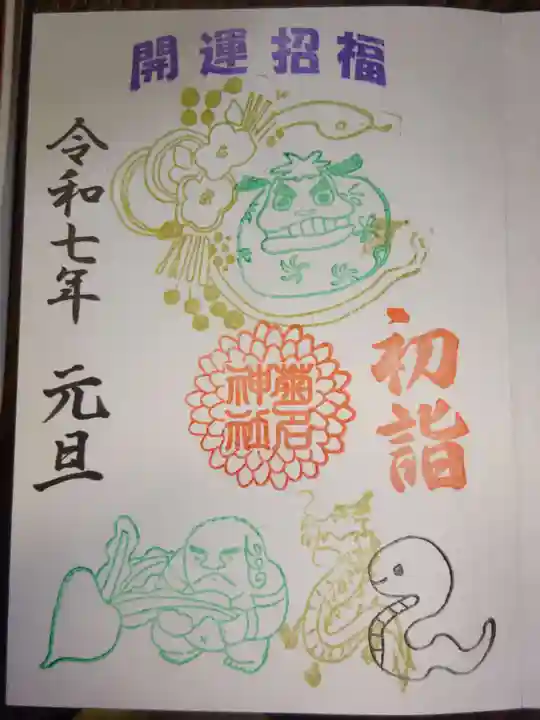 開運招福
初詣
菊名
神社
令和七年 元旦